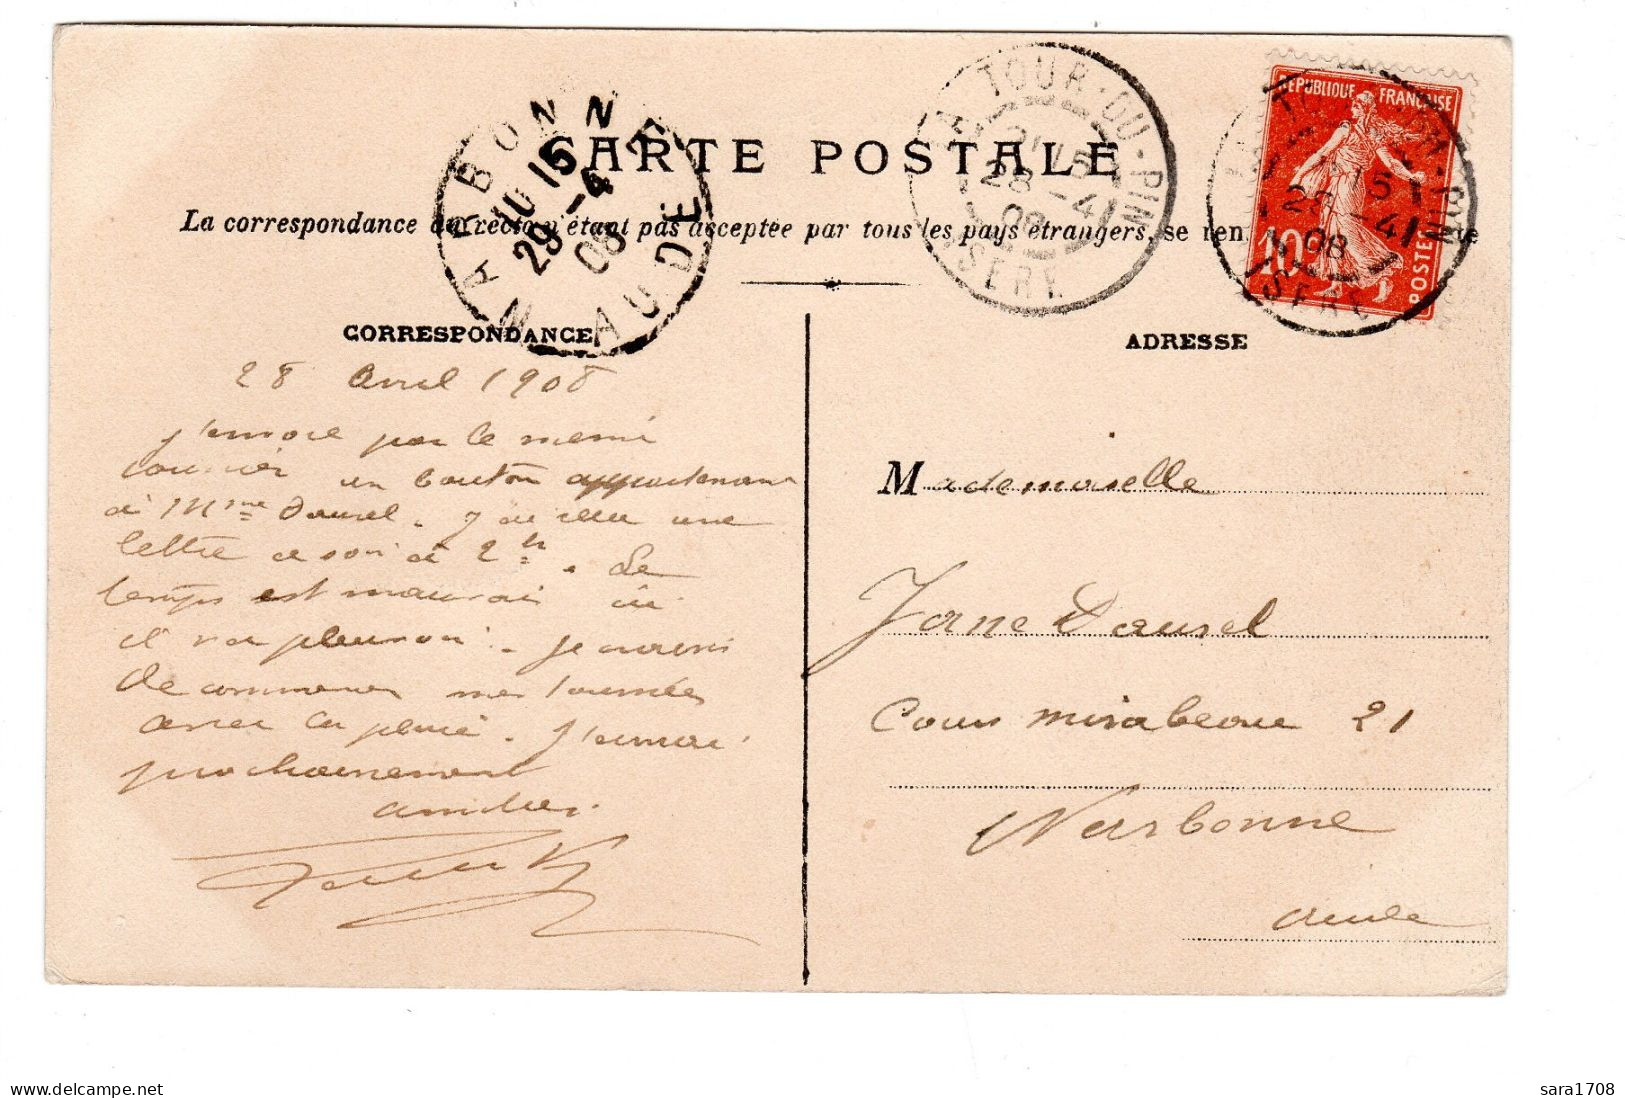 CARTE POSTALE
La correspondance au recto n'étant pas acceptée par tous les pays étrangers, se ren
NARBONNE
10 15
29 -4
08
AUDE
LA TOUR-DU-PIN
21 15
28 -4
08
ISERE
REPUBLIQUE FRANÇAISE
10
POSTES
LA TOUR-DU-PIN
15
28 -4
08
ISERE
CORRESPONDANCE
28 Avril 1908
J'envoie par le même
courrier un bouton appartenant
à Mme Dausel. J'ai reçu une
lettre ce soir à 2h. Le
temps est mauvais ici
il va pleuvoir. Je
de commencer mes tournées
avec la pluie. J'
prochainement
amitiés.
ADRESSE
Mademoiselle
Jane Dausel
Cours mirabeau 21
Narbonne
Aude
delcampe.net
sara1708